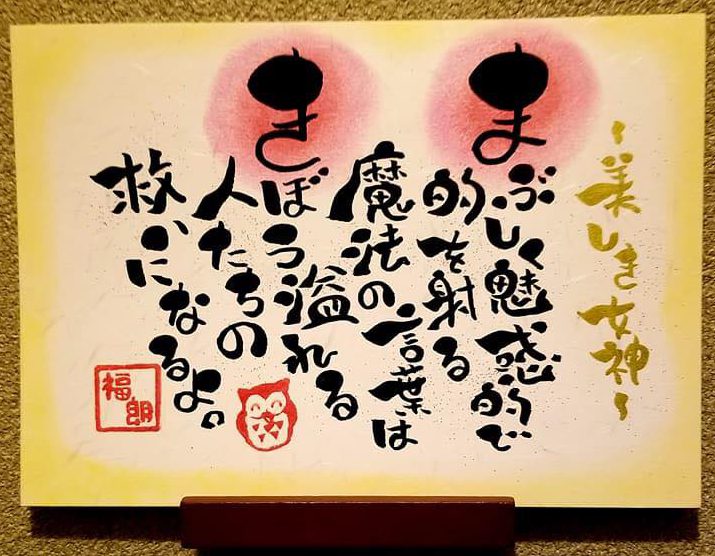 ~美しき女神~
まぶしく魅惑的で
的を射る
魔法の言葉は
きぼう溢れる
人たちの
救いになるよ。
福朗